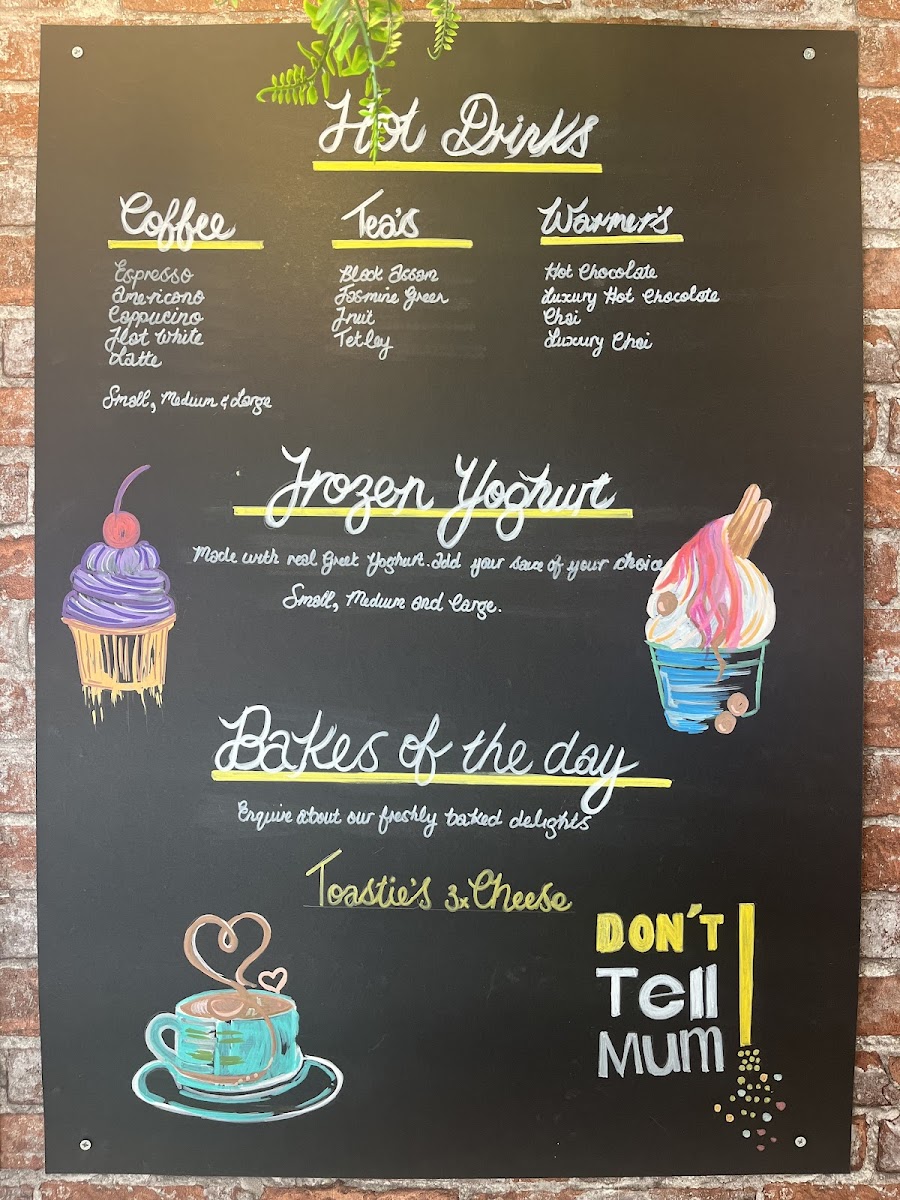 Hot Drinks
Coffee
Espresso
Americano
Cappucino
Flat White
Latte
Small, Medium & Large
Tea's
Black Assam
Jasmine Green
Fruit
Tetley
Warmer's
Hot Chocolate
Luxury Hot Chocolate
Chai
Luxury Chai
Frozen Yoghurt
Made with real Greek Yoghurt. Add your sauce of your choice
Small, Medium and Large.
Bakes of the day
Enquire about our freshly baked delights
Toastie's 3x Cheese
DON'T
Tell
Mum